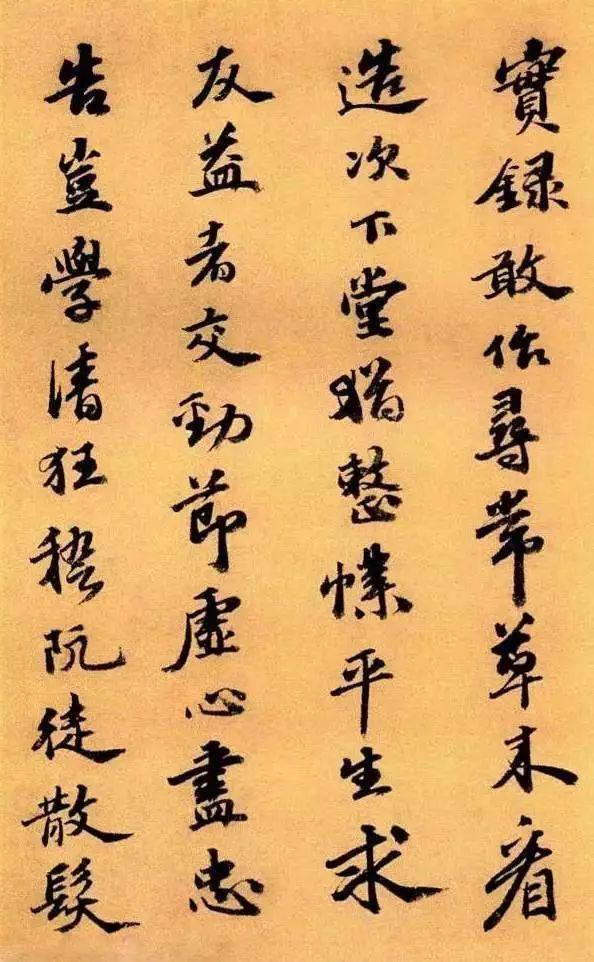 實録敢作尋常草木看
造次下堂猶整幞平生求
友益者交勁節虛心盡忠
告豈學清狂嵇阮徒散髮